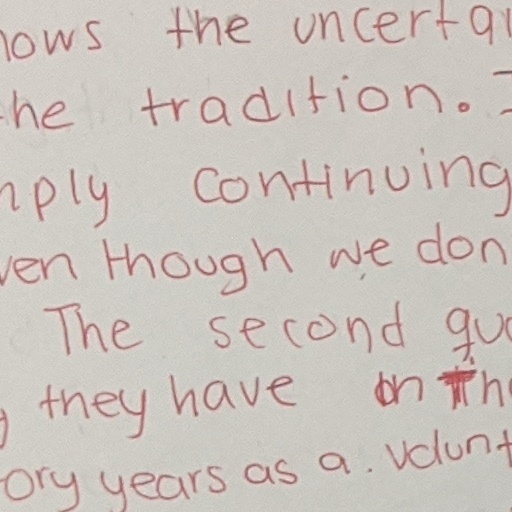 hows the uncertai
the tradition. I
mply continuing
ven though we don
The second quo
g they have on the
ory years as a. volunt